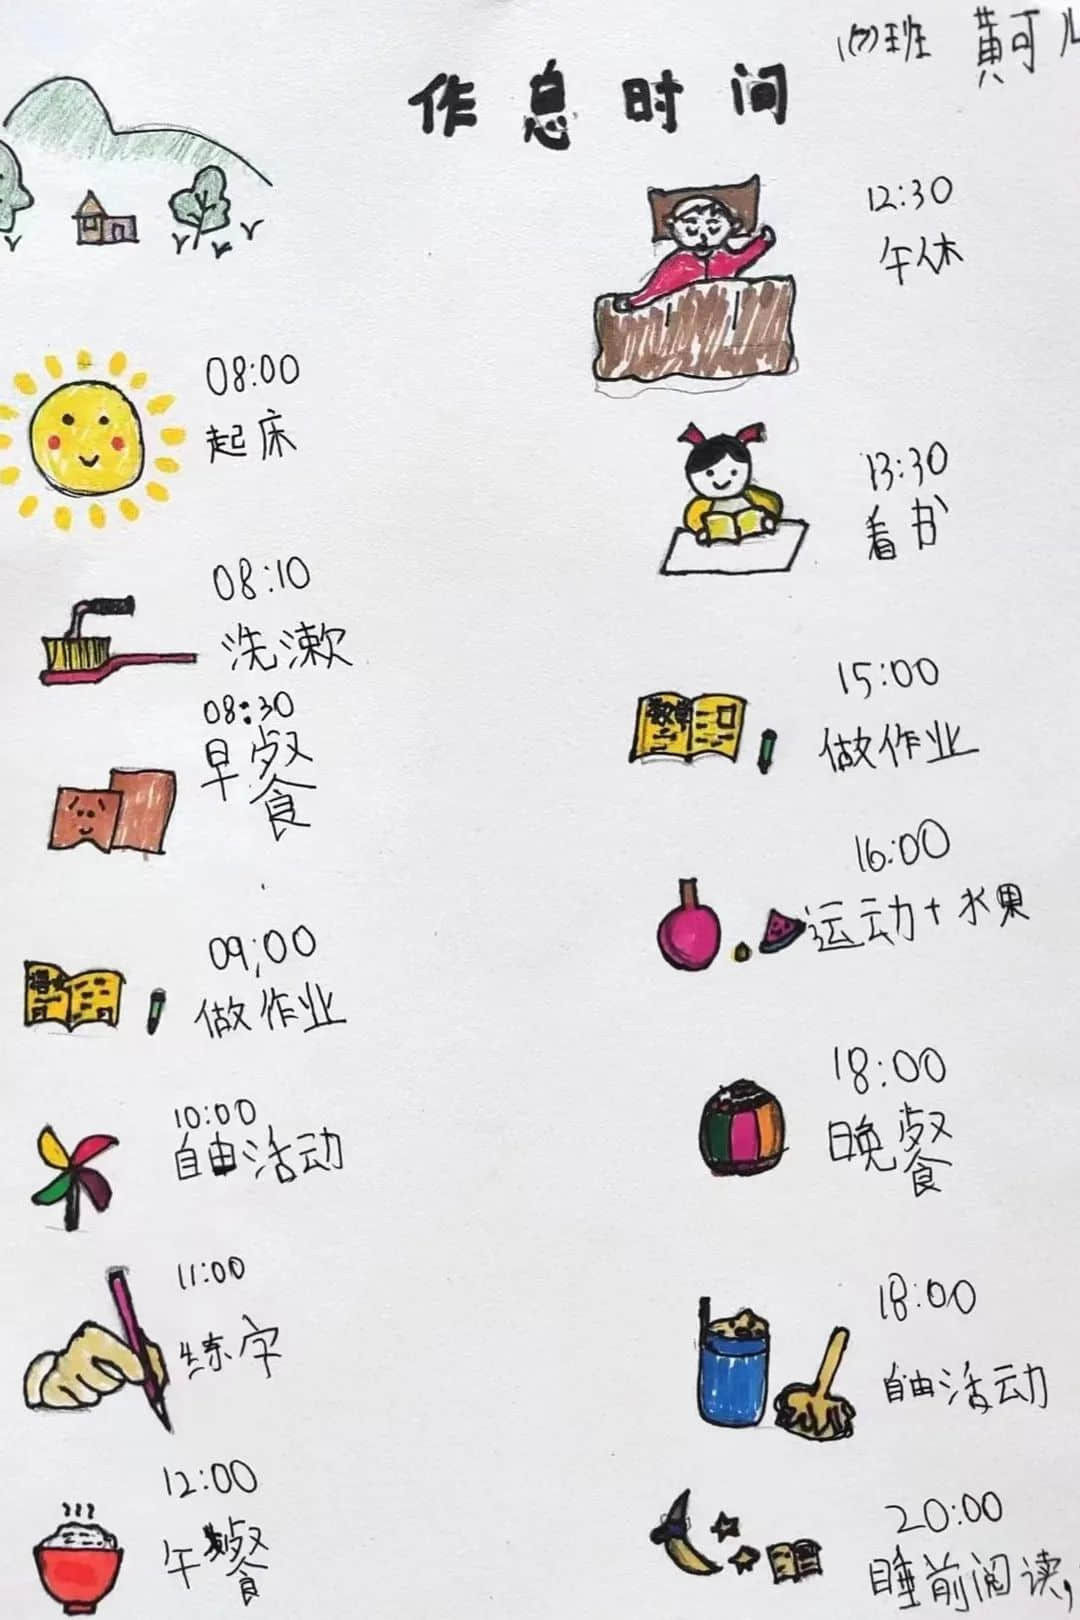 作息时间
1(7)班 黄可儿
08:00
起床
08:10
洗漱
08:30
早餐
09:00
做作业
语文
10:00
自由活动
11:00
练字
12:00
午餐
12:30
午休
13:30
看书
15:00
做作业
数学
16:00
运动+水果
18:00
晚餐
18:00
自由活动
20:00
睡前阅读,